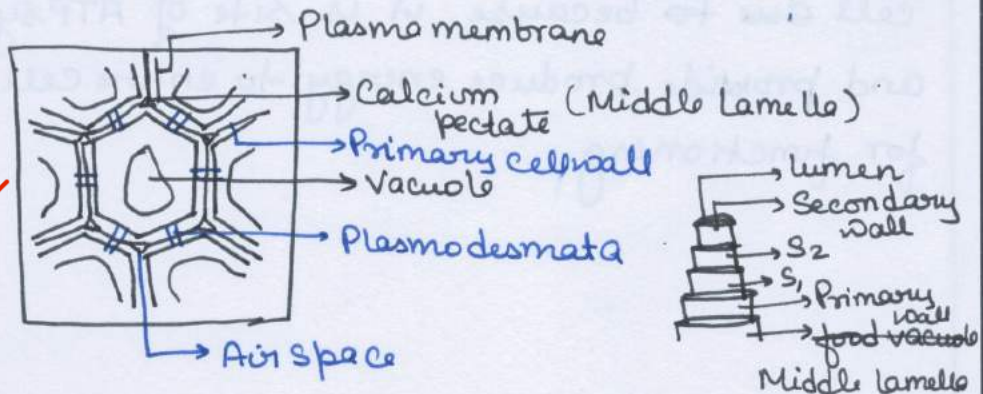 Plasma membrane
Calcium (Middle Lamelle)
Pectate
Primary cell wall
Vacuole
Plasmodesmata
Air space
Lumen
Secondary
wall
S2
S1
Primary
wall
food vacuole
Middle lamelle